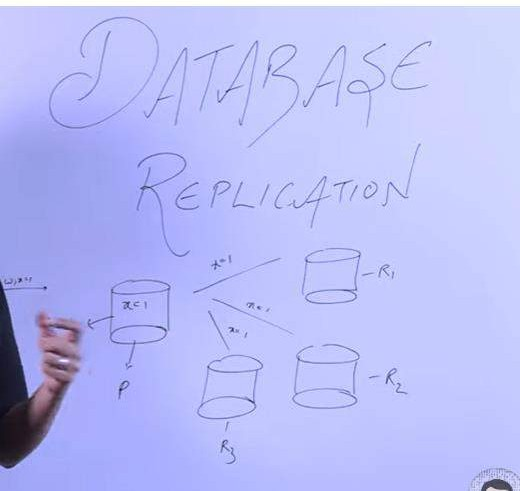 DATABASE
REPLICATION
x=1
R1
x=1
x=1
x=1
R2
P
R3